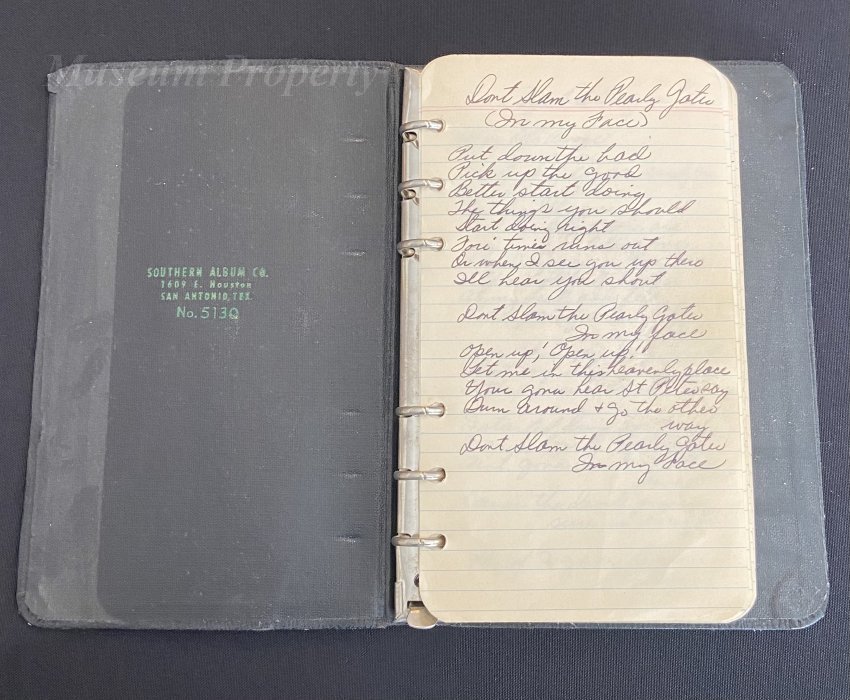 Museum Property
SOUTHERN ALBUM CO.
1609 E. Houston
SAN ANTONIO, TEX.
No. 513Q
Dont Slam the Pearly Gates
(In my Face)
Put down the bad
Pick up the good
Better start doing
The things you should
Start doing right
Fore time runs out
Or when I see you up there
Ill hear you shout
Dont Slam the Pearly Gates
In my face
Open up! Open up!
Let me in this heavenly place
Your gona hear St Peter say
Turn around + go the other
way
Dont Slam the Pearly Gates
In my Face